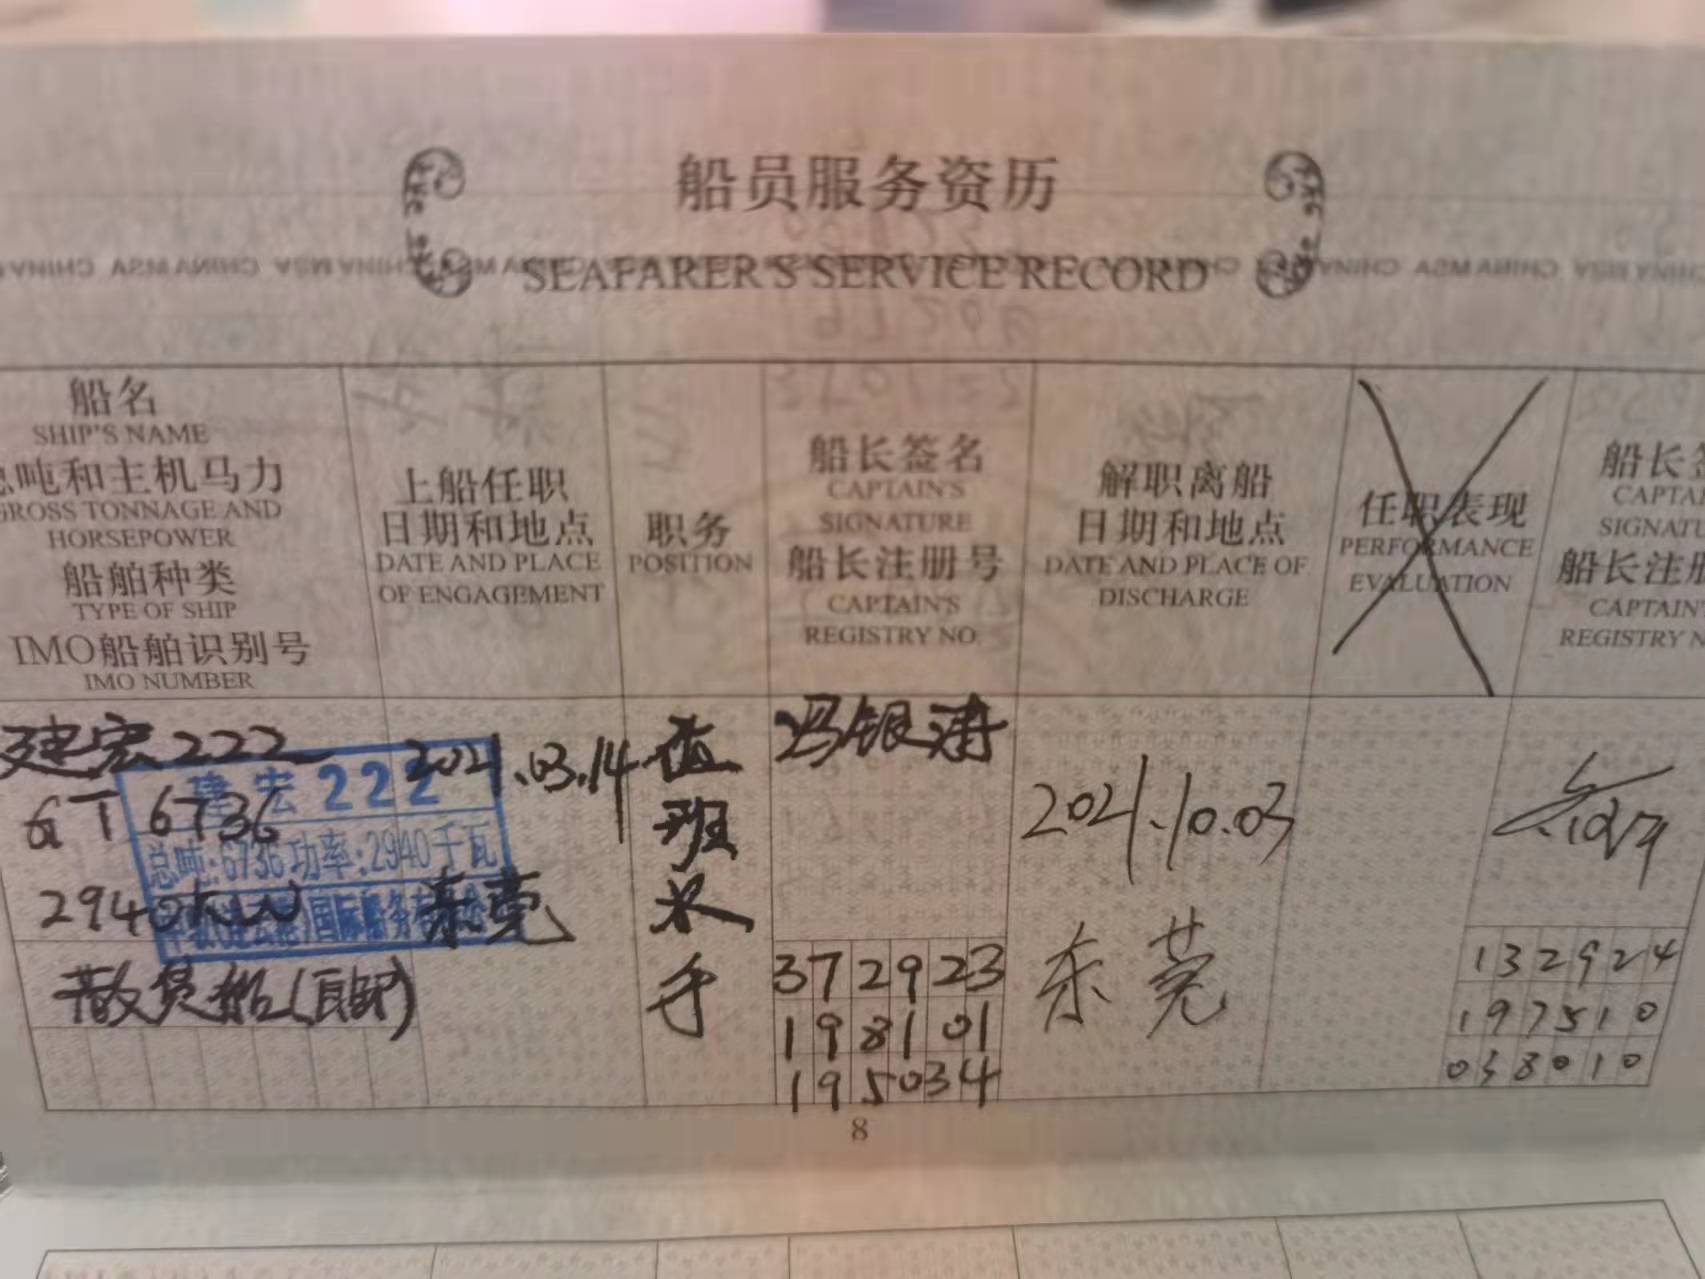 船员服务资历
SEAFARER'S SERVICE RECORD
船名
SHIP'S NAME
总吨和主机马力
GROSS TONNAGE AND
HORSEPOWER
船舶种类
TYPE OF SHIP
IMO船舶识别号
IMO NUMBER
上船任职
日期和地点
DATE AND PLACE
OF ENGAGEMENT
职务
POSITION
船长签名
CAPTAIN'S
SIGNATURE
船长注册号
CAPTAIN'S
REGISTRY NO.
解职离船
日期和地点
DATE AND PLACE OF
DISCHARGE
任职表现
PERFORMANCE
EVALUATION
船长签
CAPTA
SIGNATU
船长注册
CAPTAIN'
REGISTRY N
建宏222
GT 6736
2940KW
散货船(
建宏222
总吨:6736功率:2940千瓦
国际船务有限
2021.03.14
东莞
值
班
水
手
冯银涛
372923
198101
195034
2021.10.03
东莞
132924
197510
038010
8